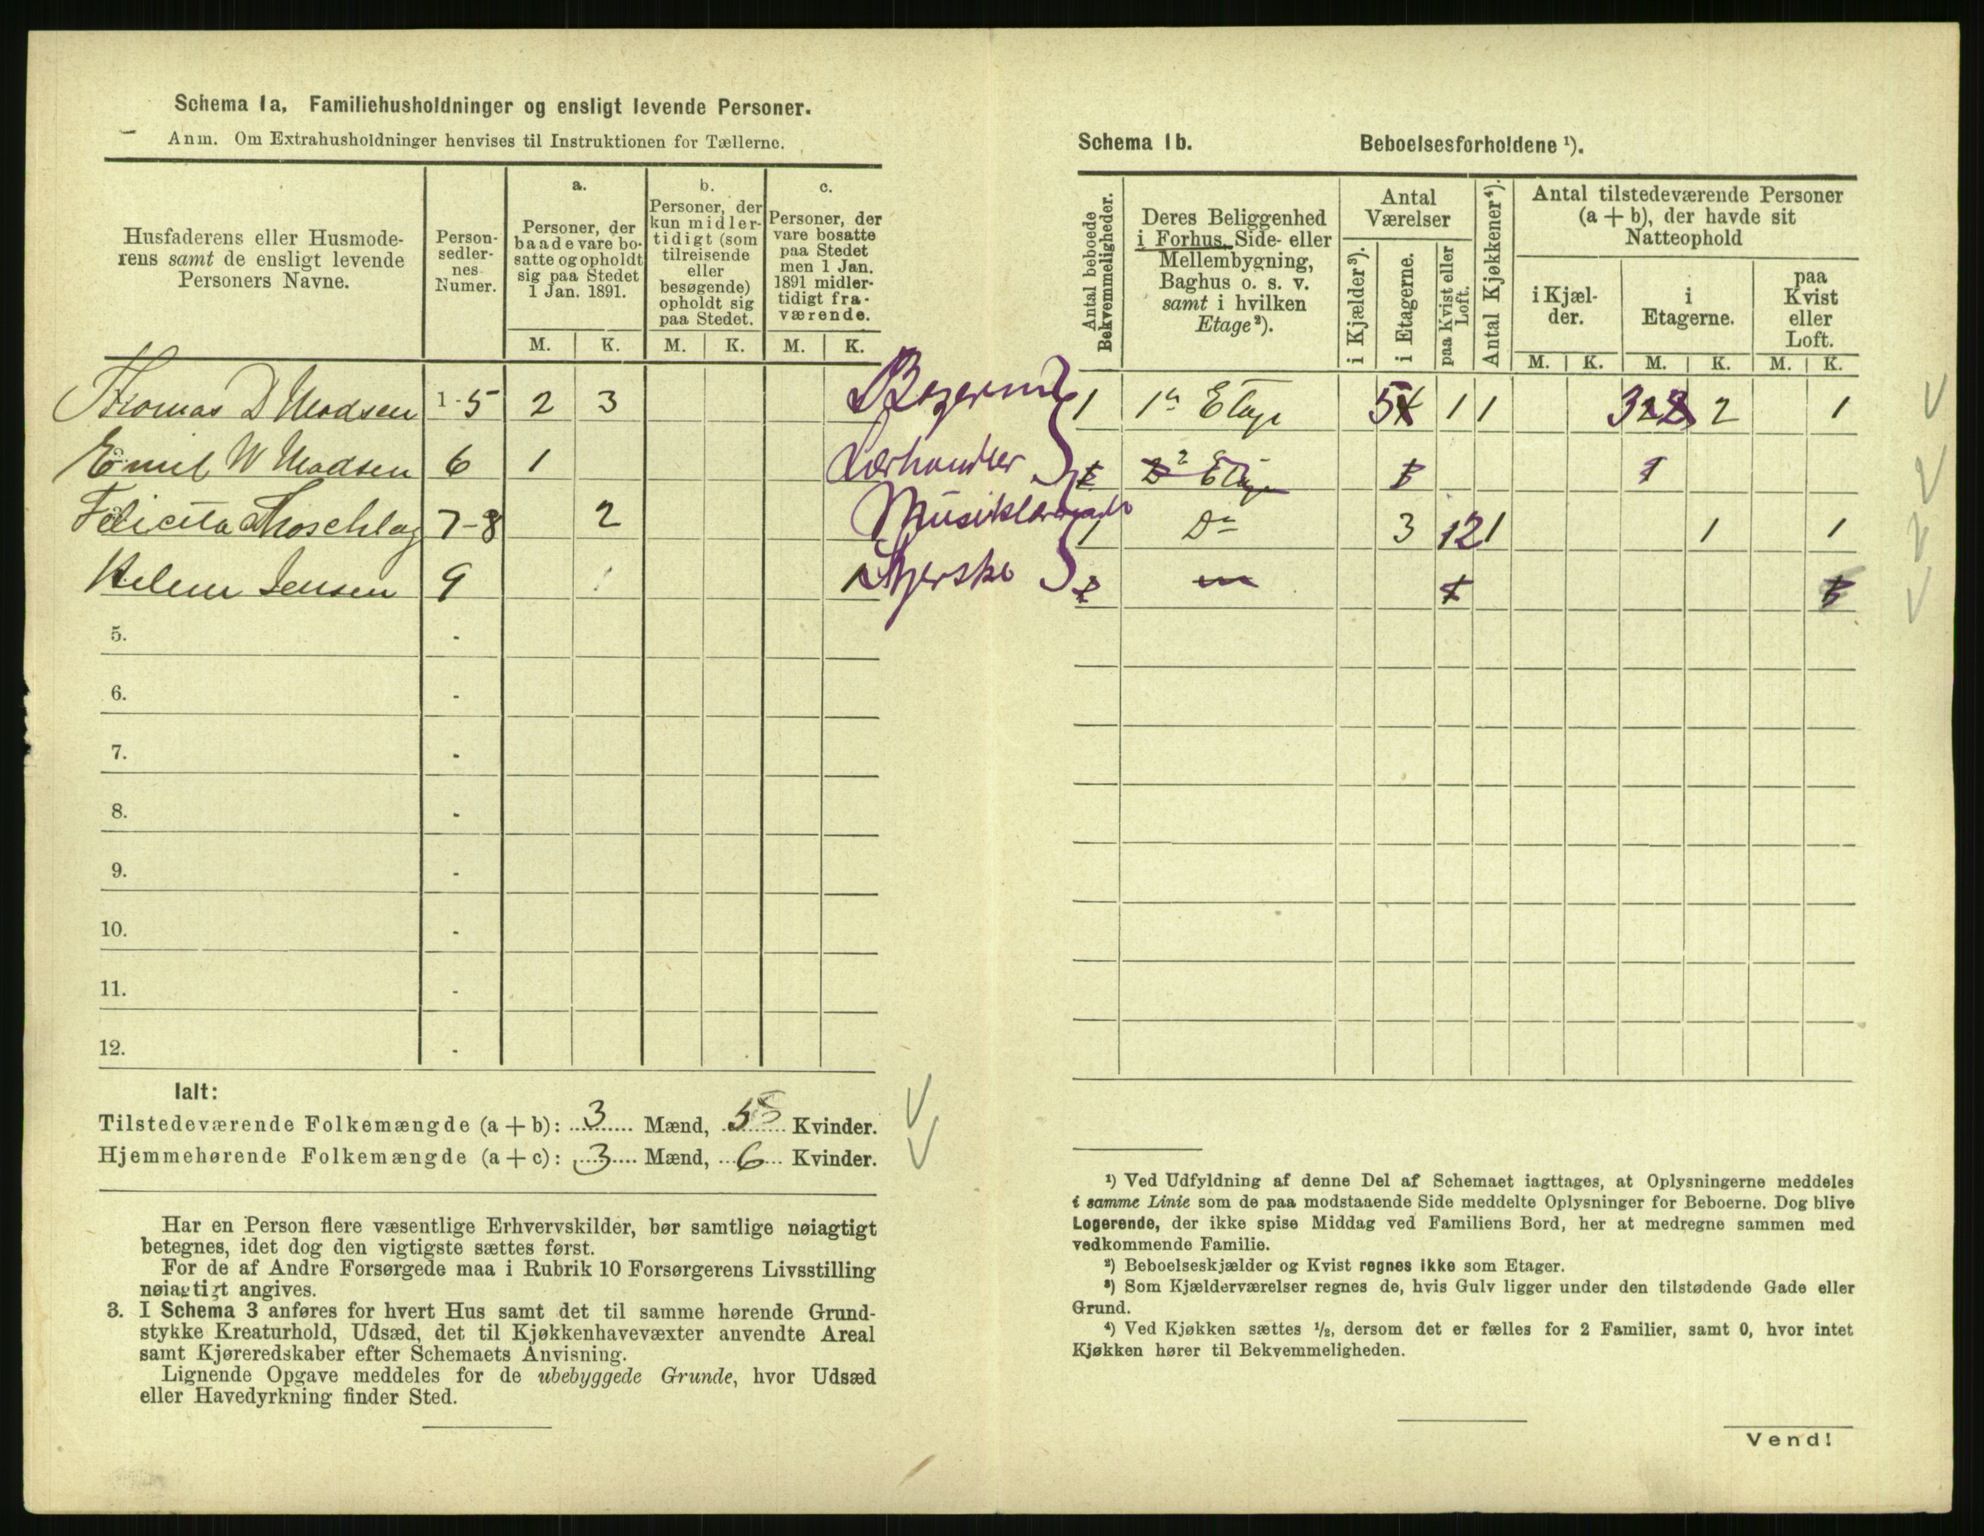 Schema 1a, Familiehusholdninger og ensligt levende Personer.
Anm. Om Extrahusholdninger henvises til Instruktionen for Tællerne.
Husfaderens eller Husmode-
rens samt de ensligt levende
Personers Navne.
Person-
sedler-
nes
Numer.
a.
Personer, der
baade vare bo-
satte og opholdt
sig paa Stedet
1 Jan. 1891.
b.
Personer, der
kun midler-
tidigt (som
tilreisende
eller
besøgende)
opholdt sig
paa Stedet.
c.
Personer, der
vare bosatte
paa Stedet
men 1 Jan.
1891 midler-
tidigt fra-
værende.
M. K. M. K. M. K.
Thomas D Madsen 1-5 2 3
Emil W Madsen 6 1 Lærhandler
Felicita 7-8 2
Helene Jensen 9 1 Syerske
5. -
6. -
7. -
8. -
9. -
10. -
11. -
12. -
Ialt:
Tilstedeværende Folkemængde (a + b): 3 Mænd, 5 Kvinder.
Hjemmehørende Folkemængde (a + c): 3 Mænd, 6 Kvinder.
Har en Person flere væsentlige Erhvervskilder, bør samtlige nøiagtigt
betegnes, idet dog den vigtigste sættes først.
For de af Andre Forsørgede maa i Rubrik 10 Forsørgerens Livsstilling
nøiagtigt angives.
3. I Schema 3 anføres for hvert Hus samt det til samme hørende Grund-
stykke Kreaturhold, Udsæd, det til Kjøkkenhavevæxter anvendte Areal
samt Kjøreredskaber efter Schemaets Anvisning.
Lignende Opgave meddeles for de ubebyggede Grunde, hvor Udsæd
eller Havedyrkning finder Sted.
Schema 1b. Beboelsesforholdene ¹).
Antal beboede
Bekvemmeligheder.
Deres Beliggenhed
i Forhus, Side- eller
Mellembygning,
Baghus o. s. v.
samt i hvilken
Etage ²).
Antal
Værelser
i Kjælder ³).
i Etagerne.
paa Kvist eller
Loft.
Antal Kjøkkener ⁴).
Antal tilstedeværende Personer
(a + b), der havde sit
Natteophold
i Kjæl-
der.
i
Etagerne.
paa
Kvist
eller
Loft.
M. K. M. K. M. K.
1 1ste Etage 5 1 1 3 2 1
2 Etage 1
1 Do 3 2 1 1 1
¹) Ved Udfyldning af denne Del af Schemaet iagttages, at Oplysningerne meddeles
i samme Linie som de paa modstaaende Side meddelte Oplysninger for Beboerne. Dog blive
Logerende, der ikke spise Middag ved Familiens Bord, her at medregne sammen med
vedkommende Familie.
²) Beboelseskjælder og Kvist regnes ikke som Etager.
³) Som Kjælderværelser regnes de, hvis Gulv ligger under den tilstødende Gade eller
Grund.
⁴) Ved Kjøkken sættes ½, dersom det er fælles for 2 Familier, samt 0, hvor intet
Kjøkken hører til Bekvemmeligheden.
Vend!